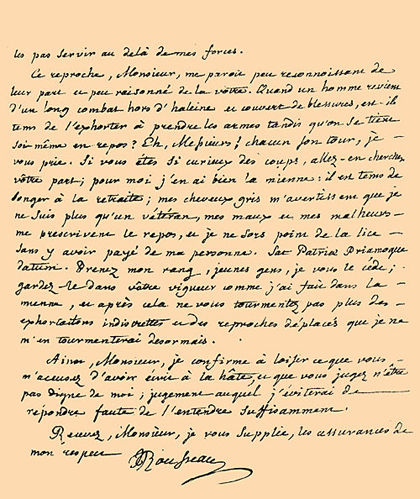 les pas servir au delà de mes forces.
Ce reproche, Monsieur, me paroit peu reconnoissant de
leur part et peu raisonné de la vôtre. Quand un homme revient
d'un long combat hors d'haleine et couvert de blessures, est-il
tems de l'exhorter à prendre les armes tandis qu'on se tient
soi-même en repos? Eh, Messieurs! chacun son tour, je
vous prie. Si vous êtes si curieux des coups, allez-en chercher
vôtre part; pour moi j'en ai bien la mienne: il est tems de
songer à la retraite; mes cheveux gris m'avertissent que je
ne suis plus qu'un vétéran, mes maux et mes malheurs
me prescrivent le repos, et je ne sors point de la lice
sans y avoir payé de ma personne. Sat Patriæ Priamoque
datum. Prenez mon rang, jeunes gens, je vous le cède;
gardez-le dans vôtre vigueur comme j'ai fait dans la
mienne, et après cela ne vous tourmentez pas plus des
exhortations indiscrettes et des reproches déplacés que je ne
m'en tourmenterai desormais.
Ainsi, Monsieur, je confirme à loisir ce que vous
m'accusez d'avoir écrit à la hâte, et que vous jugez n'être
pas digne de moi; jugement auquel j'éviterai de
repondre faute de l'entendre suffisamment.
Recevez, Monsieur, je vous supplie, les assurances de
mon respect
JJRousseau